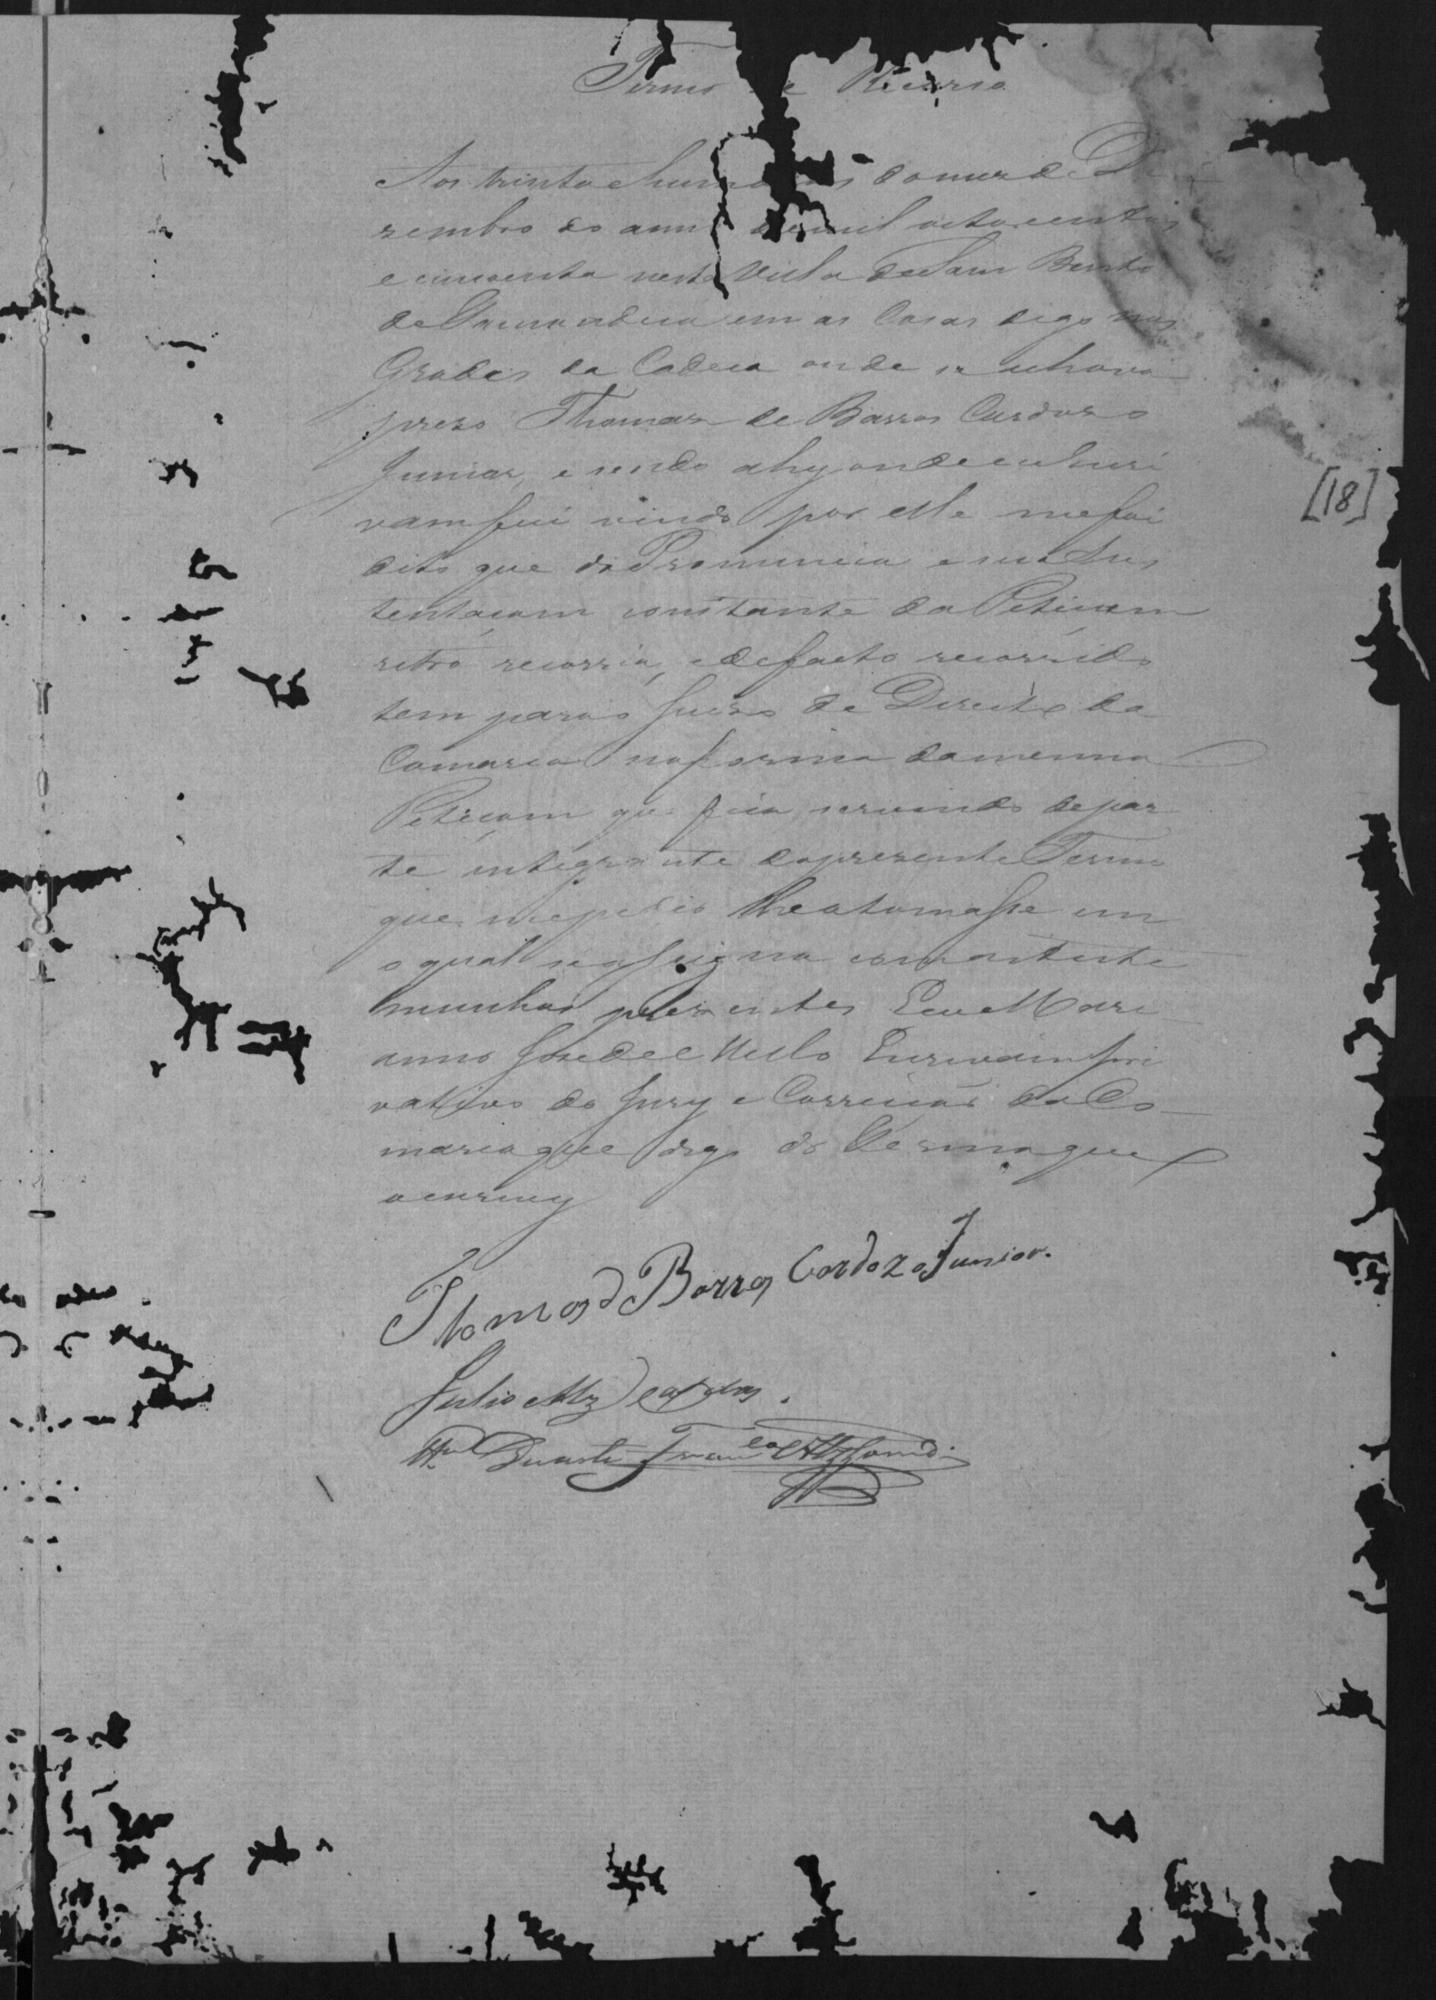 Termo de Recurso
Aos trinta e hum dias do mez de De
zembro do anno de mil oito centos
e cincoenta nesta Villa de Sam Bento
de Tamandua em as Casas digo nas
Grades da Cadeia onde se achava
prezo Thomaz de Barros Cardozo
Junior, e sendo ahy onde eu Escri
vam fui vindo por elle me foi
dito que da Pronuncia e sua Sus
tentaçam constante da Petiçam
retro recorria, e de facto recorrido
tem para o Juizo de Direito da
Comarca na forma da mesma
Petiçam que fica servindo de par
te integrante do prezente Termo
que me pedio lhe atomasse em
o qual se assigna com as teste
munhas prezentes Eu Mari
anno Jose de Mello Escrivam pri
vativo do Jury e Correicão da Co
marca que digo do Termo que
o escrevy
Thomas de Barros Cardozo Junior.
Julio
Mel Duarte
[18]